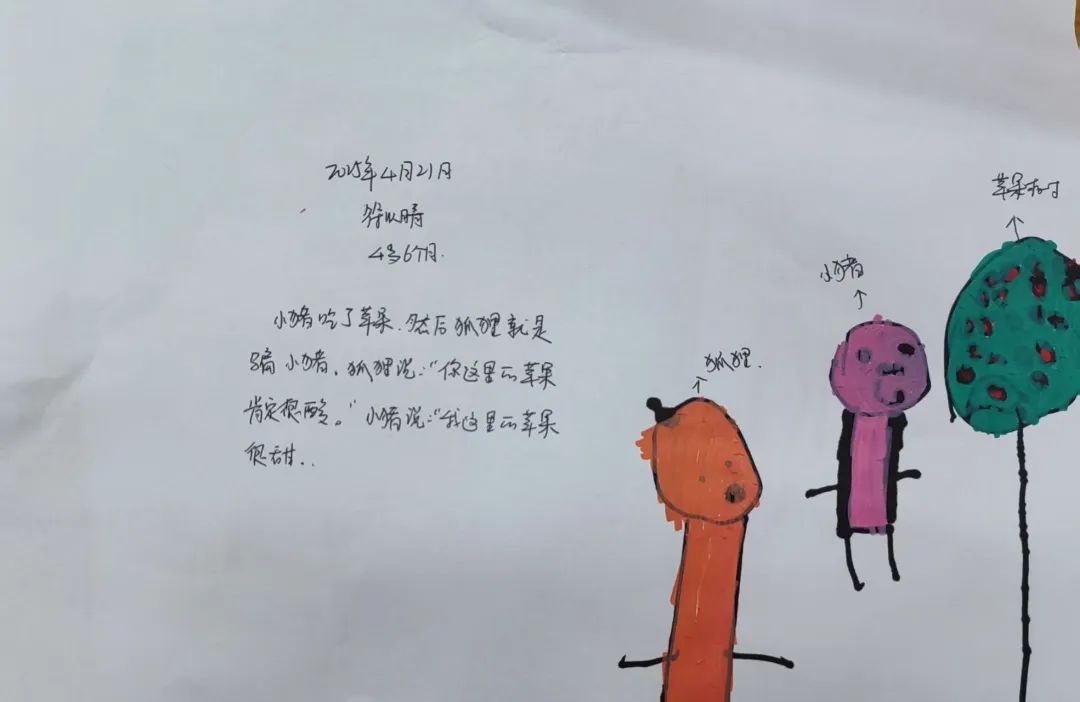 2025年4月21日
以晴
4岁6个月.
小猪吃了苹果.然后狐狸就是
骗小猪.狐狸说:"你这里的苹果
肯定很酸。"小猪说:"我这里的苹果
很甜..
狐狸.
小猪
苹果树